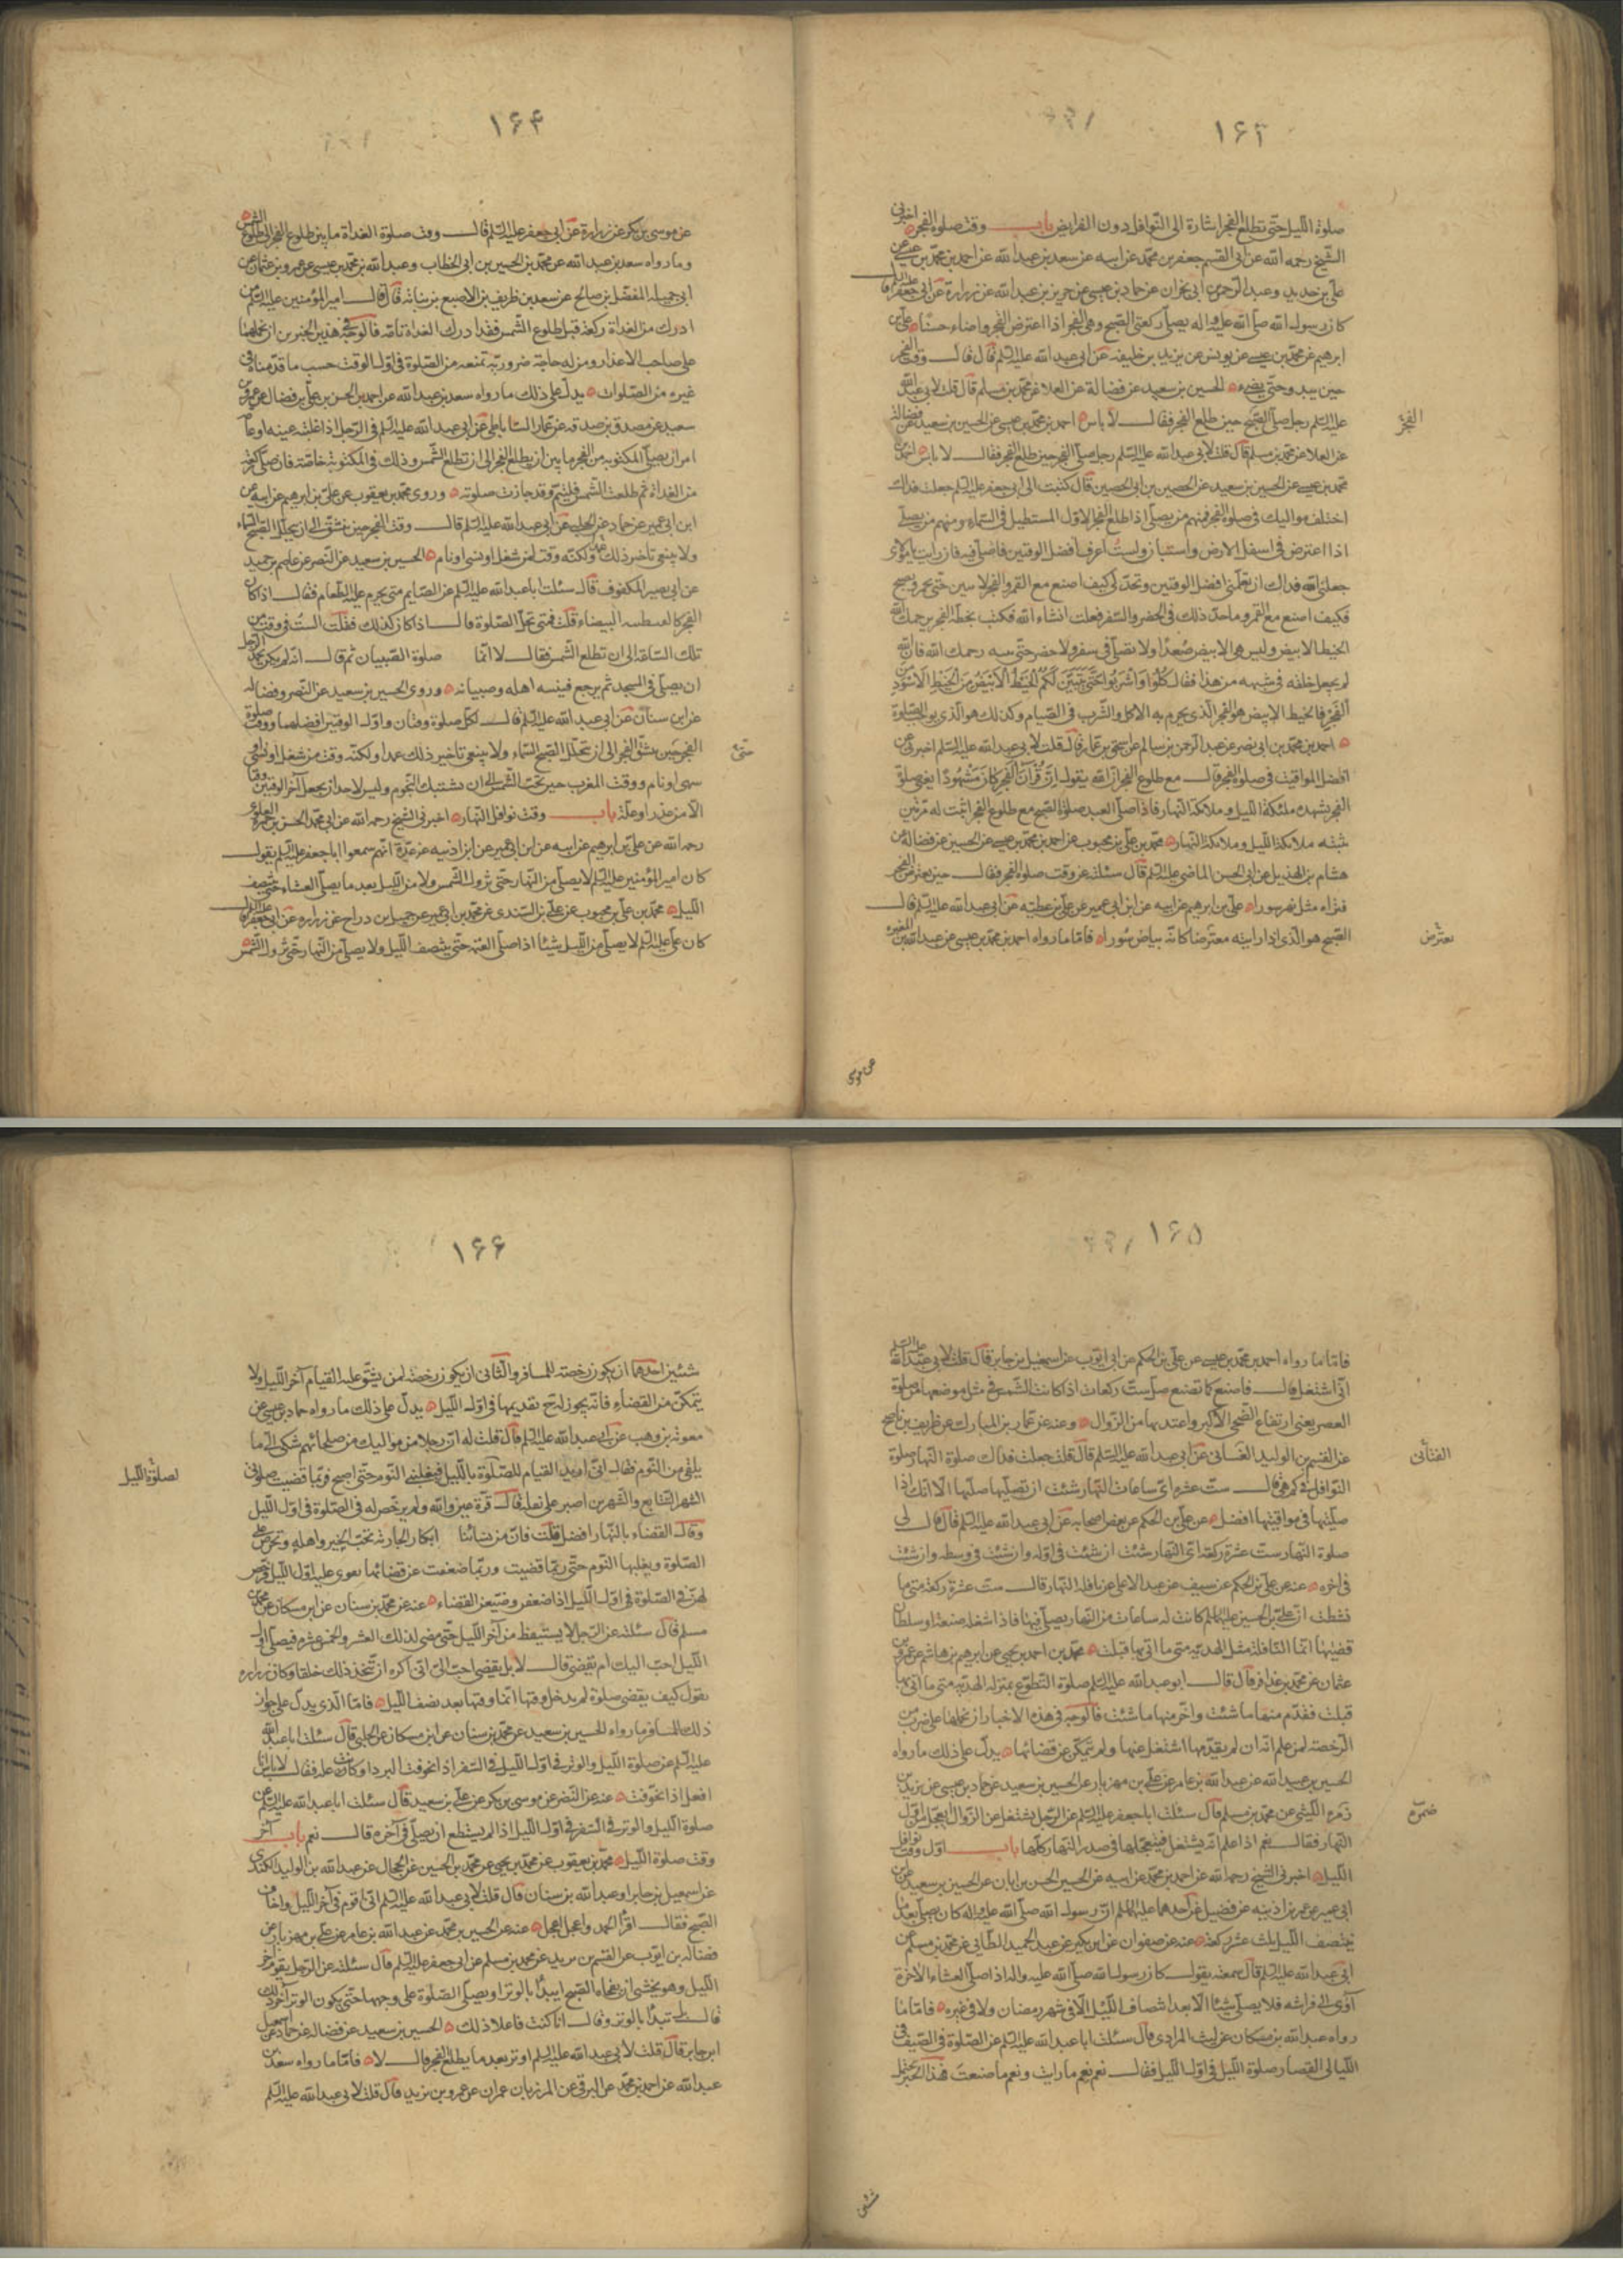 ۱۶۳
صلوة الليل حتى تطلع الفجر اشارة الى النوافل دون الفرايض باب وقت صلوة الفجر اخبرنى
الشيخ رحمه الله عن ابى القسم جعفر بن محمد عن ابيه عن سعد بن عبد الله عن احمد بن محمد بن عيسى عن
على بن حديد وعبد الرحمن ابى نجران عن حماد بن عيسى عن حريز بن عبد الله عن زرارة عن ابى جعفر عليه السلم قال
كان رسول الله صلى الله عليه واله يصلى ركعتى الصبح وهى الفجر اذا اعترض الفجر واضاء حسنا على بن
ابرهيم عن محمد بن عيسى عن يونس عن يزيد بن خليفة عن ابى عبد الله عليه السلم قال قال وقت الفجر
حين يبدو حتى يضىء الحسين بن سعيد عن فضالة عن العلا عن محمد بن مسلم قال قلت لابى عبد الله
عليه السلم رجل صلى الصبح حين طلع الفجر فقال لا باس احمد بن محمد بن عيسى عن الحسين بن سعيد عن فضالة
الفجر
عن العلا عن محمد بن مسلم قال قلت لابى عبد الله عليه السلم رجل صلى الفجر حين طلع الفجر فقال لا باس احمد بن
محمد بن عيسى عن الحسين بن سعيد عن الحصين بن ابى الحصين قال كتبت الى ابى جعفر عليه السلم جعلت فداك
اختلف مواليك فى صلوة الفجر فمنهم من يصلى اذا طلع الفجر الاول المستطيل فى السماء ومنهم من يصلى
اذا اعترض فى اسفل الارض واستبان ولست اعرف افضل الوقتين فاصلى فيه فان رايت يا مولاى
جعلنى الله فداك ان تعلمنى افضل الوقتين وتحد لى كيف اصنع مع القمر والفجر لا سين حتى يحمر ويصبح
فكيف اصنع مع القمر وما حد ذلك فى الحضر والسفر فعلت انشاء الله فكتب بخطه الفجر يرحمك الله
الخيط الابيض وليس هو الابيض صعدا ولا تصلى فى سفر ولا حضر حتى رحمك الله فان الله
لم يجعل خلقه فى شبهه من هذا فقال كُلُوا وَاشْرَبُوا حَتَّى يَتَبَيَّنَ لَكُمُ الْخَيْطُ الْاَبْيَضُ مِنَ الْخَيْطِ الْاَسْوَدِ مِنَ
الْفَجْرِ فالخيط الابيض هو الفجر الذى يحرم به الاكل والشرب فى الصيام وكذلك هو الذى يوجب الصلوة
احمد بن محمد بن ابى نصر عن عبد الرحمن بن سالم عن اسحق بن عمار قال قلت لابى عبد الله عليه السلم اخبرنى عن
افضل المواقيت فى صلوة الفجر قال مع طلوع الفجر ان الله يقول اِنَّ قُرْآنَ الْفَجْرِ كَانَ مَشْهُودًا يعنى صلوة
الفجر يشهده ملئكة الليل وملائكة النهار فاذا صلى العبد صلوة الصبح مع طلوع الفجر اثبت له مرتين
تثبته ملائكة الليل وملائكة النهار محمد بن على بن محبوب عن احمد بن محمد بن عيسى عن الحسين عن فضالة عن
هشام بن الهذيل عن ابى الحسن الماضى عليه السلم قال سئلته عن وقت صلوة الفجر فقال حين يعترض الفجر
فتراه مثل نهر سورا على بن ابرهيم عن ابيه عن ابن ابى عمير عن على بن عطية عن ابى عبد الله عليه السلم قال
الصبح هو الذى اذا رايته معترضا كانه بياض سورا فاما ما رواه احمد بن محمد بن عيسى عن عبد الله بن المغيرة
يعترض
عن موسى
۱۶۴
عن موسى بن بكر عن زرارة عن ابى جعفر عليه السلم قال وقت صلوة الغداة ما بين طلوع الفجر الى طلوع الشمس
وما رواه سعد بن عبد الله عن محمد بن الحسين بن ابى الخطاب وعبد الله بن محمد بن عيسى عن عمرو بن عثمان عن
ابى جميلة المفضل بن صالح عن سعد بن ظريف بن الاصبغ بن نباتة قال قال امير المؤمنين عليه السلم من
ادرك من الغداة ركعة قبل طلوع الشمس فقد ادرك الغداة تامة فالوجه فى هذين الخبرين ان نحملهما
على صاحب الاعذار ومن له حاجة ضرورية تمنعه من الصلوة فى اول الوقت حسب ما قدمناه فى
غيره من الصلوات يدل على ذلك ما رواه سعد بن عبد الله عن احمد بن الحسن بن على بن فضال عن عمرو بن
سعيد عن مصدق بن صدقة عن عمار الساباطى عن ابى عبد الله عليه السلم فى الرجل اذا غلبته عينه او عاقه
امر ان يصلى المكتوبة من الفجر ما بين ان يطلع الفجر الى ان تطلع الشمس وذلك فى المكتوبة خاصة فان صلى ركعة
من الغداة ثم طلعت الشمس فليتم وقد جازت صلوته وروى محمد بن يعقوب عن على بن ابرهيم عن ابيه عن
ابن ابى عمير عن حماد عن الحلبى عن ابى عبد الله عليه السلم قال وقت الفجر حين ينشق الى ان يتجلل الصبح السماء
ولا ينبغى تاخير ذلك عمدا ولكنه وقت لمن شغل او نسى او نام الحسين بن سعيد عن النضر عن عاصم بن حميد
عن ابى بصير المكفوف قال سئلت ابا عبد الله عليه السلم عن الصايم متى يحرم عليه الطعام فقال اذا كان
الفجر كالقبطية البيضاء قلت فمتى تحل الصلوة قال اذا كان كذلك فقلت الست فى وقت من
تلك الساعة الى ان تطلع الشمس فقال لا انما صلوة الصبيان ثم قال انه لم يكن يحمد الرجل
ان يصلى فى المسجد ثم يرجع فينبه اهله وصبيانه وروى الحسين بن سعيد عن النضر وفضالة
عن ابن سنان عن ابى عبد الله عليه السلم قال لكل صلوة وقتان واول الوقتين افضلهما ووقت صلوة
الفجر حين ينشق الفجر الى ان تجلل الصبح السماء ولا ينبغى تاخير ذلك عمدا ولكنه وقت من شغل او نسى او
سهى او نام ووقت المغرب حين تجب الشمس الى ان تشتبك النجوم وليس لاحد ان يجعل آخر الوقتين وقتا
الا من عذر او علة باب وقت نوافل النهار اخبرنى الشيخ رحمه الله عن ابى محمد الحسن بن حمزة العلوى
رحمه الله عن على بن ابرهيم عن ابيه عن ابن ابى عمير عن ابن اذنيه عن عدة انهم سمعوا ابا جعفر عليه السلم يقول
كان امير المؤمنين عليه السلم لا يصلى من النهار حتى تزول الشمس ولا من الليل بعد ما يصلى العشاء حتى ينتصف
الليل محمد بن على بن محبوب عن على بن السندى عن محمد بن ابى عمير عن جميل بن دراج عن زرارة عن ابى جعفر عليه السلم قال
كان على عليه السلم لا يصلى من الليل شيئا اذا صلى العتمة حتى ينتصف الليل ولا يصلى من النهار حتى تزول الشمس
۱۶۵
فاما ما رواه احمد بن محمد بن عيسى عن على بن الحكم عن ابى ايوب عن اسمعيل بن جابر قال قلت لابى عبد الله عليه السلم
انى اشتغل قال فاصنع كما تصنع صل ست ركعات اذا كانت الشمس فى مثل موضعها من صلوة
العصر يعنى ارتفاع الضحى الاكبر واعتد بها من الزوال وعنه عن عمار بن المبارك عن ظريف بن ناصح
عن القسم بن الوليد الغسانى عن ابى عبد الله عليه السلم قال قلت جعلت فداك صلوة النهار صلوة
النوافل فى كم هى قال ست عشرة اى ساعات النهار شئت ان تصليها صليتها الا انك اذا
صليتها فى مواقيتها افضل عن على بن الحكم عن بعض اصحابه عن ابى عبد الله عليه السلم قال قال لى
صلوة النهار ست عشرة ركعة اى النهار شئت ان شئت فى اوله وان شئت فى وسطه وان شئت
فى اخره عنه عن على بن الحكم عن سيف عن عبد الاعلى عن نافلة النهار قال ست عشرة ركعة متى ما
نشطت ان على بن الحسين عليهما السلم كانت له ساعات من النهار يصلى فيها فاذا شغله ضيعة او سلطان
قضيها انما النافلة مثل الهدية متى ما اتى بها قبلت محمد بن احمد بن يحيى عن ابرهيم بن هاشم عن عمرو بن
عثمان عن محمد بن عذافر قال قال ابو عبد الله عليه السلم صلوة التطوع بمنزلة الهدية متى ما اتى بها
قبلت فقدم منها ما شئت واخر منها ما شئت فالوجه فى هذه الاخبار ان نحملها على ضرب من
الرخصة لمن علم انه ان لم يقدمها اشتغل عنها ولم يتمكن عن قضائها يدل على ذلك ما رواه
الحسين بن عبد الله عن عبد الله بن عامر عن على بن مهزيار عن الحسين بن سعيد عن حماد بن عيسى عن يزيد بن
ضمرة الليثى عن محمد بن مسلم قال سئلت ابا جعفر عليه السلم عن الرجل يشتغل عن الزوال ايعجل من اول
النهار فقال نعم اذا علم انه يشتغل فيعجلها فى صدر النهار كلها باب اول وقت نوافل
الليل اخبرنى الشيخ رحمه الله عن احمد بن محمد عن ابيه عن الحسين الحسن بن ابان عن الحسين بن سعيد عن ابن
ابى عمير عن عمر بن اذينة عن فضيل عن احدهما عليهما السلم ان رسول الله صلى الله عليه واله كان يصلى بعد ما
ينتصف الليل ثلث عشر ركعة عنه عن صفوان عن ابن بكير عن عبد الحميد الطائى عن محمد بن مسلم عن
ابى عبد الله عليه السلم قال سمعته يقول كان رسول الله صلى الله عليه واله اذا صلى العشاء الاخرة
آوى الى فراشه فلا يصلى شيئا الا بعد انتصاف الليل الا فى شهر رمضان ولا فى غيره فاما ما
رواه عبد الله بن مسكان عن ليث المرادى قال سئلت ابا عبد الله عليه السلم عن الصلوة فى الصيف فى
الليالى القصار صلوة الليل فى اول الليل فقال نعم نعم ما رايت ونعم ما صنعت فهذا الخبر يحتمل
ضمرة
شئين
۱۶۶
شئين احدهما ان يكون رخصة للمسافر والثانى ان يكون رخصة لمن يشق عليه القيام آخر الليل ولا
يتمكن من القضاء فانه يجوز له تقديمها فى اول الليل يدل على ذلك ما رواه حماد بن عيسى عن
معوية بن وهب عن ابى عبد الله عليه السلم قال قلت له ان رجلا من مواليك من صلحائهم شكى الى ما
يلقى من النوم فقال انى اريد القيام للصلوة بالليل فيغلبنى النوم حتى اصبح فربما قضيت صلوتى
لصلوة الليل
الشهر المتتابع والشهرين اصبر على ثقله فقال قرة عين والله ولم يرخص له فى الصلوة فى اول الليل
وقال القضاء بالنهار افضل قلت فان من نسائنا ابكار الجارية تحب الخير واهله وتحرص على
الصلوة ويغلبها النوم حتى ربما قضيت وربما ضعفت عن قضائها تقوى عليه اول الليل فرخص
لهن فى الصلوة فى اول الليل اذا ضعفن وضيعن القضاء عنه عن محمد بن سنان عن ابن مسكان عن محمد بن
مسلم قال سئلته عن الرجل لا يستيقظ من آخر الليل حتى مضى لذلك العشر والخمس عشرة فيصلى اول
الليل احب اليك ام يقضى قال لا بل يقضى احب الى انى اكره ان تتخذ ذلك خلقا وكان زرارة
يقول كيف يقضى صلوة لم يدخل وقتها انما وقتها بعد نصف الليل فاما الذى يدل على جواز
ذلك للمسافر ما رواه الحسين بن سعيد عن محمد بن سنان عن ابن مسكان عن الحلبى قال سئلت ابا عبد الله
عليه السلم عن صلوة الليل والوتر فى اول الليل فى السفر اذا تخوفت البرد او كانت علة فقال لا باس انا
افعل اذا تخوفت عنه عن النضر عن موسى بن بكر عن على بن سعيد قال سئلت ابا عبد الله عليه السلم عن
صلوة الليل والوتر فى السفر فى اول الليل اذا لم يستطع ان يصلى فى آخره قال نعم باب آخر
وقت صلوة الليل محمد بن يعقوب عن محمد بن يحيى عن محمد بن الحسين عن الحجال عن عبد الله بن الوليد الكندى
عن اسمعيل بن جابر او عبد الله بن سنان قال قلت لابى عبد الله عليه السلم انى اقوم فى آخر الليل واخاف
الصبح فقال اقرأ الحمد واعجل اعجل عنه عن الحسين بن محمد عن عبد الله بن عامر عن على بن مهزيار عن
فضالة بن ايوب عن القسم بن بريد عن محمد بن مسلم عن ابى جعفر عليه السلم قال سئلته عن الرجل يقوم آخر
الليل وهو يخشى ان يفجأه الصبح ايبدأ بالوتر او يصلى الصلوة على وجهها حتى يكون الوتر آخر ذلك
قال بل تبدأ بالوتر وقال انا كنت فاعلا ذلك الحسين بن سعيد عن فضالة عن حماد عن اسمعيل
ابن جابر قال قلت لابى عبد الله عليه السلم اوتر بعد ما يطلع الفجر قال لا فاما ما رواه سعد بن
عبد الله عن احمد بن محمد عن البرقى عن المرزبان عمران عن عمرو بن يزيد قال قلت لابى عبد الله عليه السلم